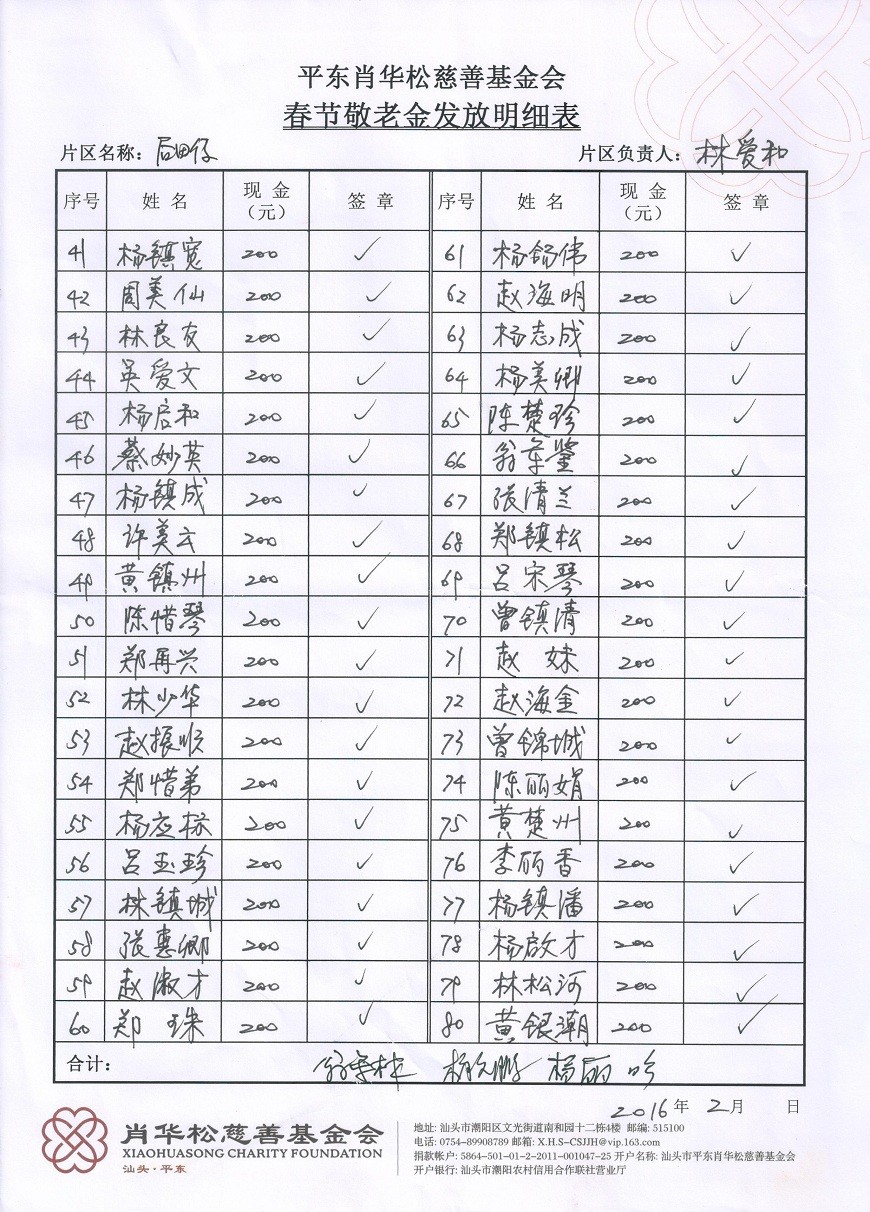 平东肖华松慈善基金会
春节敬老金发放明细表
片区名称: 后田仔 片区负责人: 林爱和
序号 姓名 现金(元) 签章 序号 姓名 现金(元) 签章
41 杨镇宽 200 ✓ 61 杨錫伟 200 ✓
42 周美仙 200 ✓ 62 赵海明 200 ✓
43 林良友 200 ✓ 63 杨志成 200 ✓
44 吴爱文 200 ✓ 64 杨美卿 200 ✓
45 杨启和 200 ✓ 65 陈楚珍 200 ✓
46 蔡妙英 200 ✓ 66 翁 200 ✓
47 杨镇成 200 ✓ 67 張清兰 200 ✓
48 许美云 200 ✓ 68 郑镇松 200 ✓
49 黄镇州 200 ✓ 69 吕宋琴 200 ✓
50 陈惜琴 200 ✓ 70 曾镇清 200 ✓
51 郑再兴 200 ✓ 71 赵妹 200 ✓
52 林少华 200 ✓ 72 赵海金 200 ✓
53 赵振顺 200 ✓ 73 曾锦城 200 ✓
54 郑惜弟 200 ✓ 74 陈丽娟 200 ✓
55 杨应标 200 ✓ 75 黄楚州 200 ✓
56 吕玉珍 200 ✓ 76 李丽香 200 ✓
57 林镇城 200 ✓ 77 杨镇潘 200 ✓
58 張惠卿 200 ✓ 78 杨啟才 200 ✓
59 赵淑才 200 ✓ 79 林松河 200 ✓
60 郑珠 200 ✓ 80 黄银潮 200 ✓
合计: 杨丽吟
2016年 2月 日
肖华松慈善基金会
XIAOHUASONG CHARITY FOUNDATION
汕头·平东
地址: 汕头市潮阳区文光街道南和园十二栋4楼 邮编: 515100
电话: 0754-89908789 邮箱: X.H.S-CSJJH@vip.163.com
捐款帐户: 5864-501-01-2-2011-001047-25 开户名称: 汕头市平东肖华松慈善基金会
开户银行: 汕头市潮阳农村信用合作联社营业厅